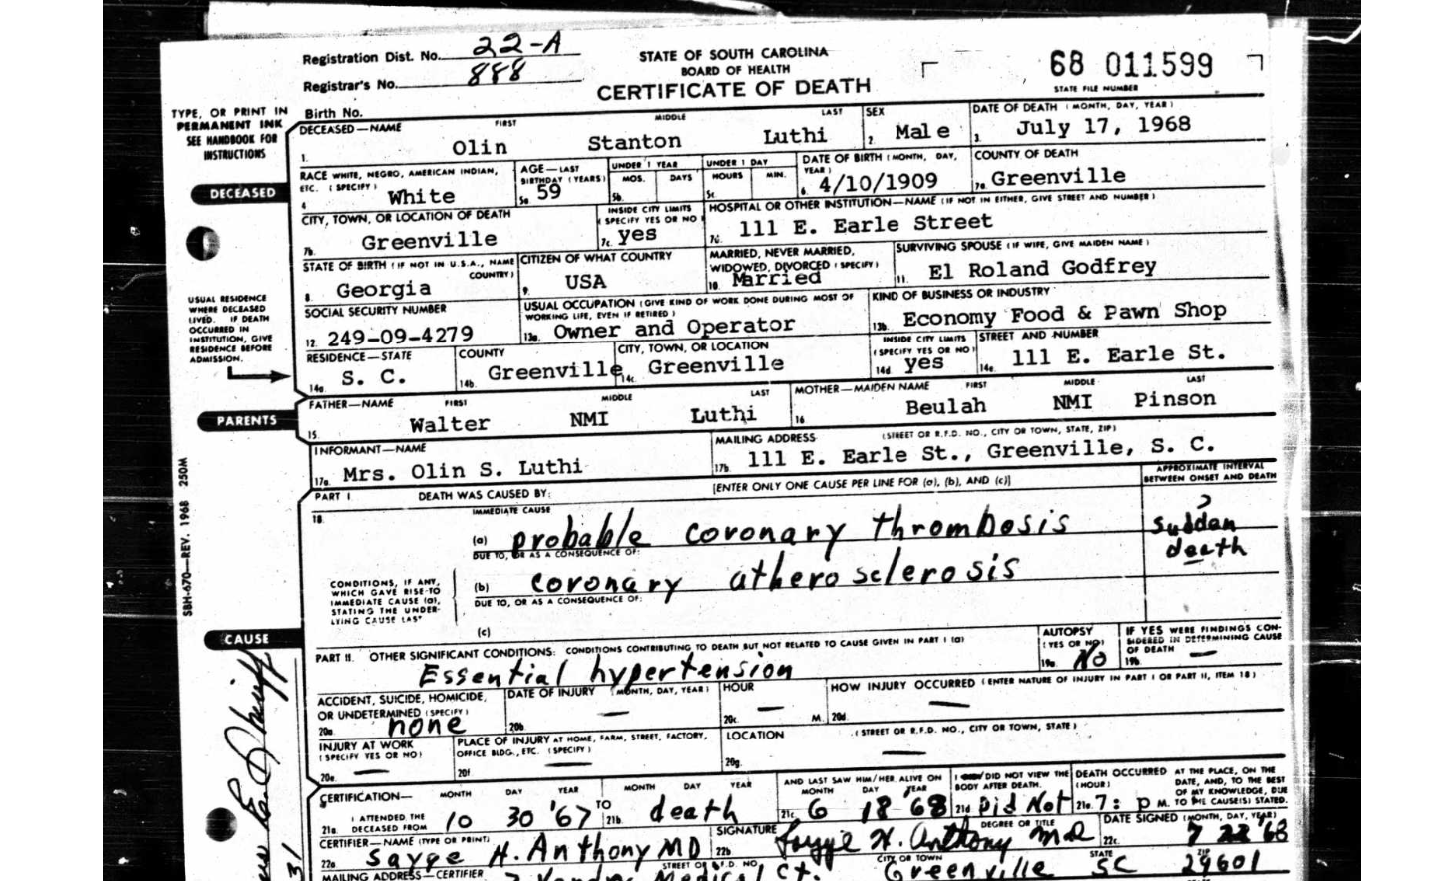 Registration Dist. No. 22-A
Registrar's No. 888
STATE OF SOUTH CAROLINA
BOARD OF HEALTH
CERTIFICATE OF DEATH
68 011599
STATE FILE NUMBER
TYPE, OR PRINT IN
PERMANENT INK
SEE HANDBOOK FOR
INSTRUCTIONS
Birth No.
DECEASED—NAME FIRST MIDDLE LAST
1. Olin Stanton Luthi
SEX
2. Male
DATE OF DEATH (MONTH, DAY, YEAR)
3. July 17, 1968
DECEASED
RACE WHITE, NEGRO, AMERICAN INDIAN,
ETC. (SPECIFY)
4. White
AGE—LAST
BIRTHDAY (YEARS)
5a. 59
UNDER 1 YEAR
MOS. DAYS
5b.
UNDER 1 DAY
HOURS MIN.
5c.
DATE OF BIRTH (MONTH, DAY,
YEAR)
6. 4/10/1909
COUNTY OF DEATH
7a. Greenville
CITY, TOWN, OR LOCATION OF DEATH
7b. Greenville
INSIDE CITY LIMITS
(SPECIFY YES OR NO)
7c. yes
HOSPITAL OR OTHER INSTITUTION—NAME (IF NOT IN EITHER, GIVE STREET AND NUMBER)
7d. 111 E. Earle Street
STATE OF BIRTH (IF NOT IN U.S.A., NAME
COUNTRY)
8. Georgia
CITIZEN OF WHAT COUNTRY
9. USA
MARRIED, NEVER MARRIED,
WIDOWED, DIVORCED (SPECIFY)
10. Married
SURVIVING SPOUSE (IF WIFE, GIVE MAIDEN NAME)
11. El Roland Godfrey
USUAL RESIDENCE
WHERE DECEASED
LIVED. IF DEATH
OCCURRED IN
INSTITUTION, GIVE
RESIDENCE BEFORE
ADMISSION.
SOCIAL SECURITY NUMBER
12. 249-09-4279
USUAL OCCUPATION (GIVE KIND OF WORK DONE DURING MOST OF
WORKING LIFE, EVEN IF RETIRED)
13a. Owner and Operator
KIND OF BUSINESS OR INDUSTRY
13b. Economy Food & Pawn Shop
RESIDENCE—STATE
14a. S. C.
COUNTY
14b. Greenville
CITY, TOWN, OR LOCATION
14c. Greenville
INSIDE CITY LIMITS
(SPECIFY YES OR NO)
14d. yes
STREET AND NUMBER
14e. 111 E. Earle St.
PARENTS
FATHER—NAME FIRST MIDDLE LAST
15. Walter NMI Luthi
MOTHER—MAIDEN NAME FIRST MIDDLE LAST
16. Beulah NMI Pinson
INFORMANT—NAME
17a. Mrs. Olin S. Luthi
MAILING ADDRESS (STREET OR R.F.D. NO., CITY OR TOWN, STATE, ZIP)
17b. 111 E. Earle St., Greenville, S. C.
SBH-670—REV. 1968 250M
PART I DEATH WAS CAUSED BY: [ENTER ONLY ONE CAUSE PER LINE FOR (a), (b), AND (c)]
APPROXIMATE INTERVAL
BETWEEN ONSET AND DEATH
18.
IMMEDIATE CAUSE
(a) probable coronary thrombosis
? sudden
death
DUE TO, OR AS A CONSEQUENCE OF:
(b) coronary atherosclerosis
DUE TO, OR AS A CONSEQUENCE OF:
(c)
CONDITIONS, IF ANY,
WHICH GAVE RISE TO
IMMEDIATE CAUSE (a),
STATING THE UNDER-
LYING CAUSE LAST
CAUSE
PART II. OTHER SIGNIFICANT CONDITIONS: CONDITIONS CONTRIBUTING TO DEATH BUT NOT RELATED TO CAUSE GIVEN IN PART I (a)
Essential hypertension
AUTOPSY
(YES OR NO)
19a. No
IF YES WERE FINDINGS CON-
SIDERED IN DETERMINING CAUSE
OF DEATH
19b. —
ACCIDENT, SUICIDE, HOMICIDE,
OR UNDETERMINED (SPECIFY)
20a. none
DATE OF INJURY (MONTH, DAY, YEAR)
20b. —
HOUR
20c. — M.
HOW INJURY OCCURRED (ENTER NATURE OF INJURY IN PART I OR PART II, ITEM 18)
20d. —
INJURY AT WORK
(SPECIFY YES OR NO)
20e. —
PLACE OF INJURY AT HOME, FARM, STREET, FACTORY,
OFFICE BLDG., ETC. (SPECIFY)
20f. —
LOCATION (STREET OR R.F.D. NO., CITY OR TOWN, STATE)
20g. —
CERTIFICATION— MONTH DAY YEAR MONTH DAY YEAR
I ATTENDED THE
DECEASED FROM
21a. 10 30 '67 TO 21b. death
AND LAST SAW HIM/HER ALIVE ON
MONTH DAY YEAR
21c. 6 18 68
I DID NOT VIEW THE
BODY AFTER DEATH.
21d. Did Not
DEATH OCCURRED
(HOUR)
21e. 7: P M.
AT THE PLACE, ON THE
DATE, AND, TO THE BEST
OF MY KNOWLEDGE, DUE
TO THE CAUSE(S) STATED.
CERTIFIER—NAME (TYPE OR PRINT)
22a. Sayge H. Anthony MD
SIGNATURE DEGREE OR TITLE
22b. H. Anthony MD
DATE SIGNED (MONTH, DAY, YEAR)
22c. 7 22 '68
MAILING ADDRESS—CERTIFIER STREET OR R.F.D. NO. CITY OR TOWN STATE ZIP
Medical Ct. Greenville SC 29601
31